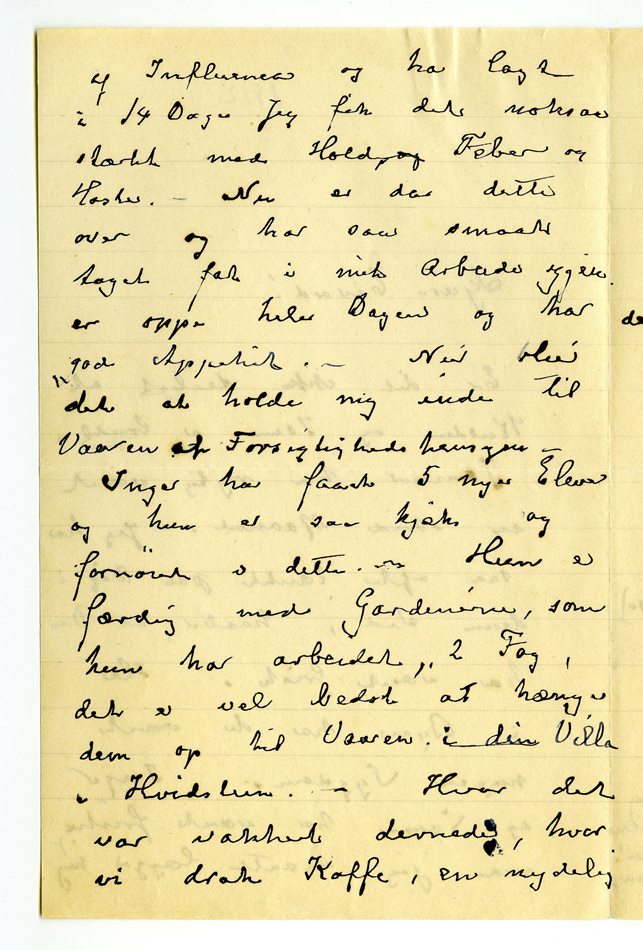 af Influensa og har lagt
i 14 Dage Jeg fik det noksaa
stærkt med Hold, og Feber og
Hoste. – Nu er da dette
over og har saa smaat
taget fat i mit Arbeide igjen
er oppe hele Dagen og har
god Appetit. – Nu blir
det at holde mig inde til
Vaaren af Forsigtigheds hensyn –
Inger har faaet 5 nye Elever
og hun er saa kjæk og
fornöiet i dette. – Hun er
færdig med Gardinerne, som
hun har arbeidet, 2 Fag,
det er vel bedst at hænge
dem op til Vaaren. i din Villa
i Hvidsten. – Hvor det
var vakkert dernede, hvor
vi drak Kaffe, en nydelig